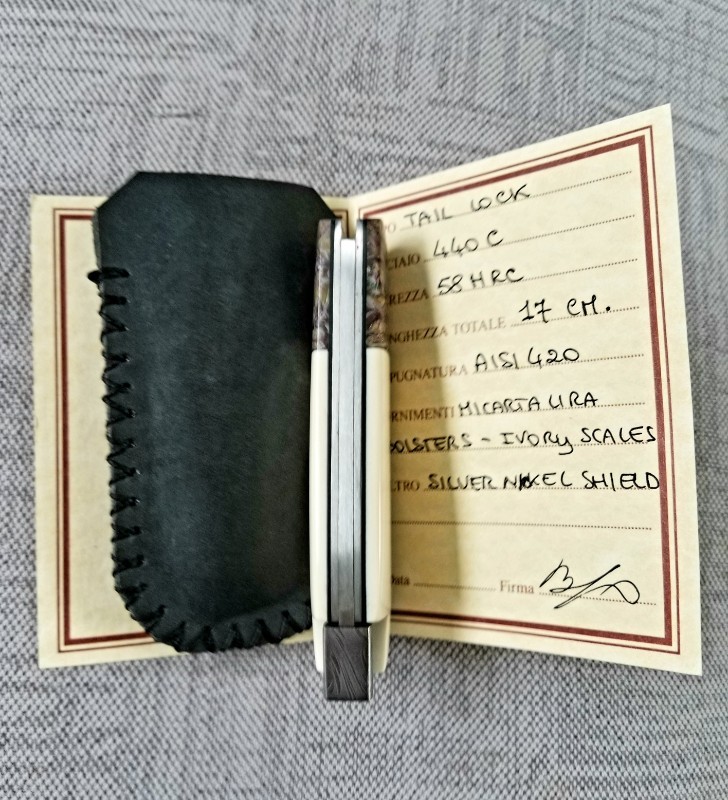 PO TAIL LOCK
CIAIO 440 C
REZZA 58 HRC
NGHEZZA TOTALE 17 CM.
PUGNATURA AISI 420
RNIMENTI MICARTA LIRA
BOLSTERS - IVORY SCALES
LTRO SILVER NIKEL SHIELD
Data
Firma